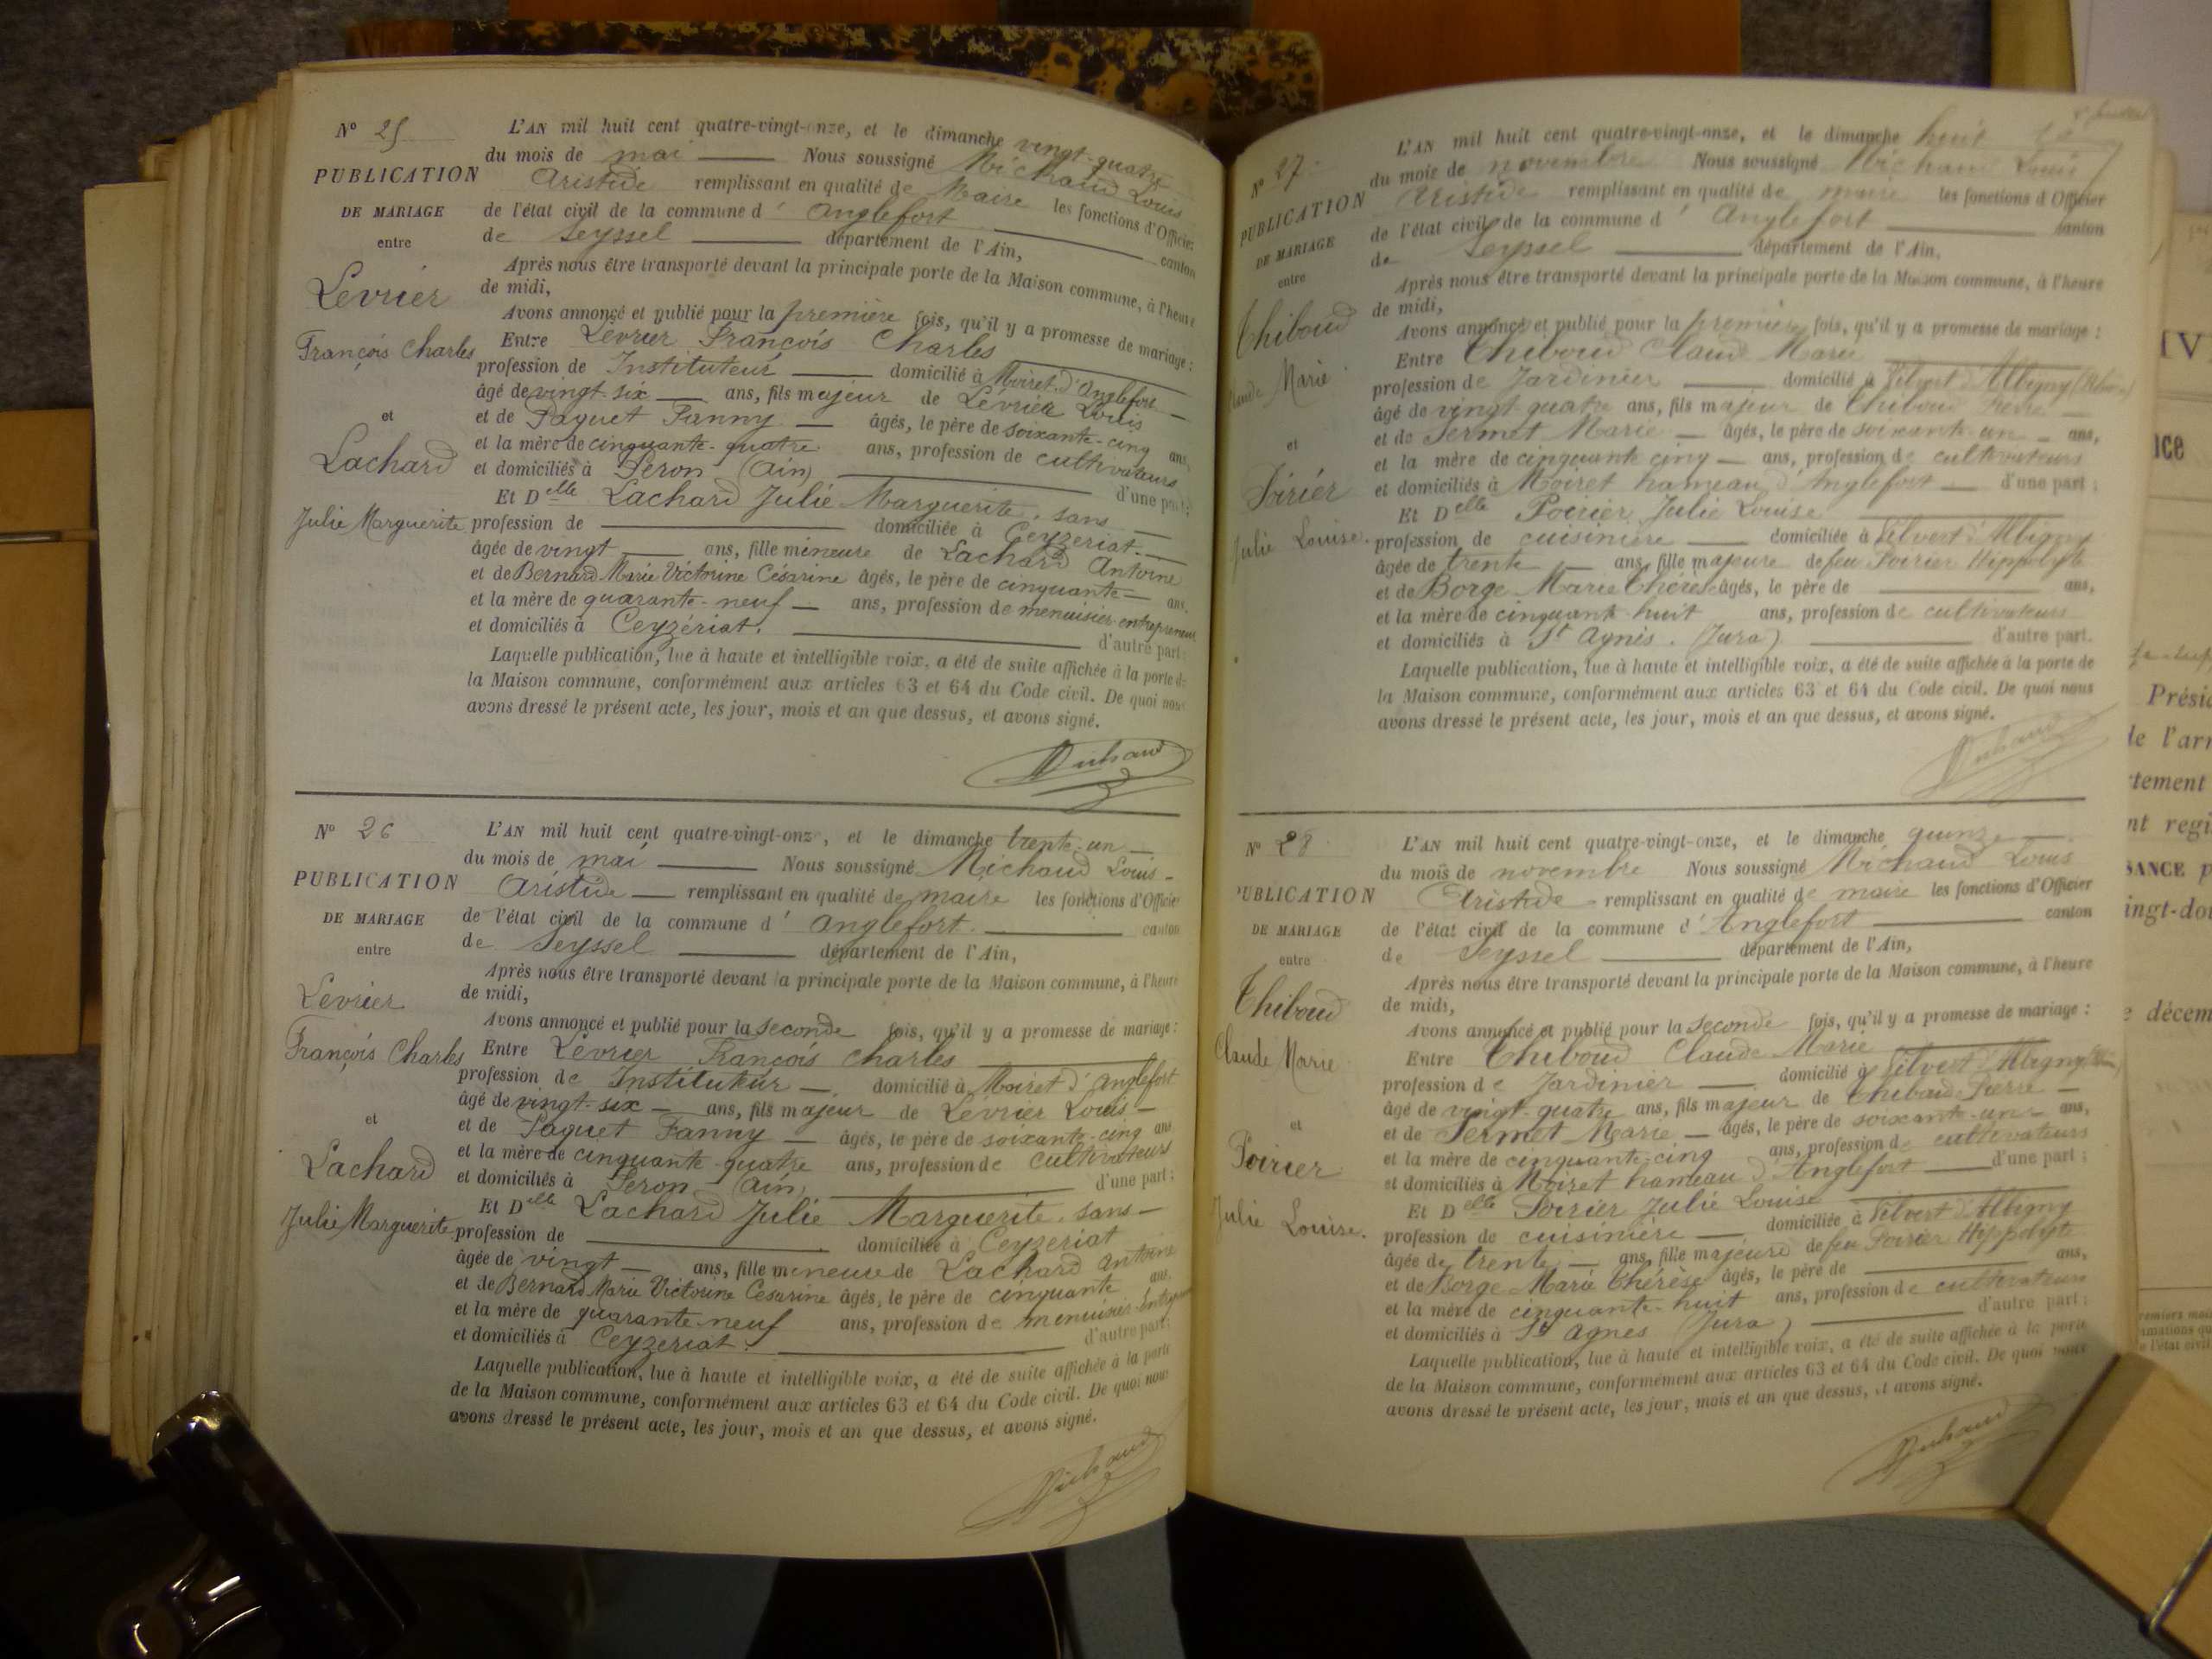 Nº 25
PUBLICATION
DE MARIAGE
entre
Lévrier
François Charles
et
Lachard
Julie Marguerite
L'AN mil huit cent quatre-vingt-onze, et le dimanche vingt-quatre
du mois de mai Nous soussigné Michaud Louis
Aristide remplissant en qualité de Maire les fonctions d'Officier
de l'état civil de la commune d' Anglefort canton
de Seyssel département de l'Ain,
Après nous être transporté devant la principale porte de la Maison commune, à l'heure
de midi,
Avons annoncé et publié pour la première fois, qu'il y a promesse de mariage :
Entre Lévrier François Charles
profession de Instituteur domicilié à Moiret d'Anglefort
âgé de vingt six ans, fils majeur de Lévrier Louis
et de Paquet Fanny âgés, le père de soixante-cinq ans,
et la mère de cinquante-quatre ans, profession de cultivateurs
et domiciliés à Peron (Ain) d'une part;
Et Delle Lachard Julie Marguerite, sans
profession de domiciliée à Ceyzeriat.
âgée de vingt ans, fille mineure de Lachard Antoine
et de Bernard Marie Victorine Césarine âgés, le père de cinquante ans,
et la mère de quarante-neuf ans, profession de menuisier-entrepreneur
et domiciliés à Ceyzériat. d'autre part;
Laquelle publication, lue à haute et intelligible voix, a été de suite affichée à la porte de
la Maison commune, conformément aux articles 63 et 64 du Code civil. De quoi nous
avons dressé le présent acte, les jour, mois et an que dessus, et avons signé.
Michaud
Nº 26
PUBLICATION
DE MARIAGE
entre
Levrier
François Charles
et
Lachard
Julie Marguerite
L'AN mil huit cent quatre-vingt-onze, et le dimanche trente-un
du mois de mai Nous soussigné Michaud Louis
Aristide remplissant en qualité de maire les fonctions d'Officier
de l'état civil de la commune d' Anglefort. canton
de Seyssel département de l'Ain,
Après nous être transporté devant la principale porte de la Maison commune, à l'heure
de midi,
Avons annoncé et publié pour la seconde fois, qu'il y a promesse de mariage :
Entre Lévrier François Charles
profession de Instituteur domicilié à Moiret d'Anglefort
âgé de vingt-six ans, fils majeur de Lévrier Louis
et de Paquet Fanny âgés, le père de soixante-cinq ans,
et la mère de cinquante-quatre ans, profession de cultivateurs
et domiciliés à Peron (Ain) d'une part;
Et Delle Lachard Julie Marguerite, sans
profession de domiciliée à Ceyzeriat
âgée de vingt ans, fille mineure de Lachard Antoine
et de Bernard Marie Victorine Césarine âgés, le père de cinquante ans,
et la mère de quarante-neuf ans, profession de menuisier-Entrepreneur
et domiciliés à Ceyzeriat. d'autre part;
Laquelle publication, lue à haute et intelligible voix, a été de suite affichée à la porte
de la Maison commune, conformément aux articles 63 et 64 du Code civil. De quoi nous
avons dressé le présent acte, les jour, mois et an que dessus, et avons signé.
Michaud
Nº 27
PUBLICATION
DE MARIAGE
entre
Thiboud
Claude Marie
et
Poirier
Julie Louise.
L'AN mil huit cent quatre-vingt-onze, et le dimanche huit
du mois de novembre Nous soussigné Michaud Louis
Aristide remplissant en qualité de maire les fonctions d'Officier
de l'état civil de la commune d' Anglefort canton
de Seyssel département de l'Ain,
Après nous être transporté devant la principale porte de la Maison commune, à l'heure
de midi,
Avons annoncé et publié pour la première fois, qu'il y a promesse de mariage :
Entre Thiboud Claude Marie
profession de Jardinier domicilié à Vilvert d'Albigny (Rhône)
âgé de vingt-quatre ans, fils majeur de Thiboud Pierre
et de Sermet Marie âgés, le père de soixante-un ans,
et la mère de cinquante cinq ans, profession de cultivateurs
et domiciliés à Moiret hameau d'Anglefort d'une part ;
Et Delle Poirier Julie Louise
profession de cuisinière domiciliée à Vilvert d'Albigny
âgée de trente ans, fille majeure de feu Poirier Hippolyte
et de Borge Marie Thérèse âgés, le père de ans,
et la mère de cinquante huit ans, profession de cultivateurs
et domiciliés à St Agnès. (Jura) d'autre part.
Laquelle publication, lue à haute et intelligible voix, a été de suite affichée à la porte de
la Maison commune, conformément aux articles 63 et 64 du Code civil. De quoi nous
avons dressé le présent acte, les jour, mois et an que dessus, et avons signé.
Michaud
Nº 28
PUBLICATION
DE MARIAGE
entre
Thiboud
Claude Marie
et
Poirier
Julie Louise.
L'AN mil huit cent quatre-vingt-onze, et le dimanche quinze
du mois de novembre Nous soussigné Michaud Louis
Aristide remplissant en qualité de maire les fonctions d'Officier
de l'état civil de la commune d' Anglefort canton
de Seyssel département de l'Ain,
Après nous être transporté devant la principale porte de la Maison commune, à l'heure
de midi,
Avons annoncé et publié pour la seconde fois, qu'il y a promesse de mariage :
Entre Thiboud Claude Marie
profession de Jardinier domicilié à Vilvert d'Albigny
âgé de vingt-quatre ans, fils majeur de Thiboud Pierre
et de Sermet Marie âgés, le père de soixante-un ans,
et la mère de cinquante-cinq ans, profession de cultivateurs
et domiciliés à Moiret hameau d'Anglefort d'une part ;
Et Delle Poirier Julie Louise
profession de cuisinière domiciliée à Vilvert d'Albigny
âgée de trente ans, fille majeure de feu Poirier Hippolyte
et de Borge Marie Thérèse âgés, le père de ans,
et la mère de cinquante-huit ans, profession de cultivateurs
et domiciliés à St Agnès (Jura) d'autre part;
Laquelle publication, lue à haute et intelligible voix, a été de suite affichée à la porte
de la Maison commune, conformément aux articles 63 et 64 du Code civil. De quoi nous
avons dressé le présent acte, les jour, mois et an que dessus, et avons signé.
Michaud